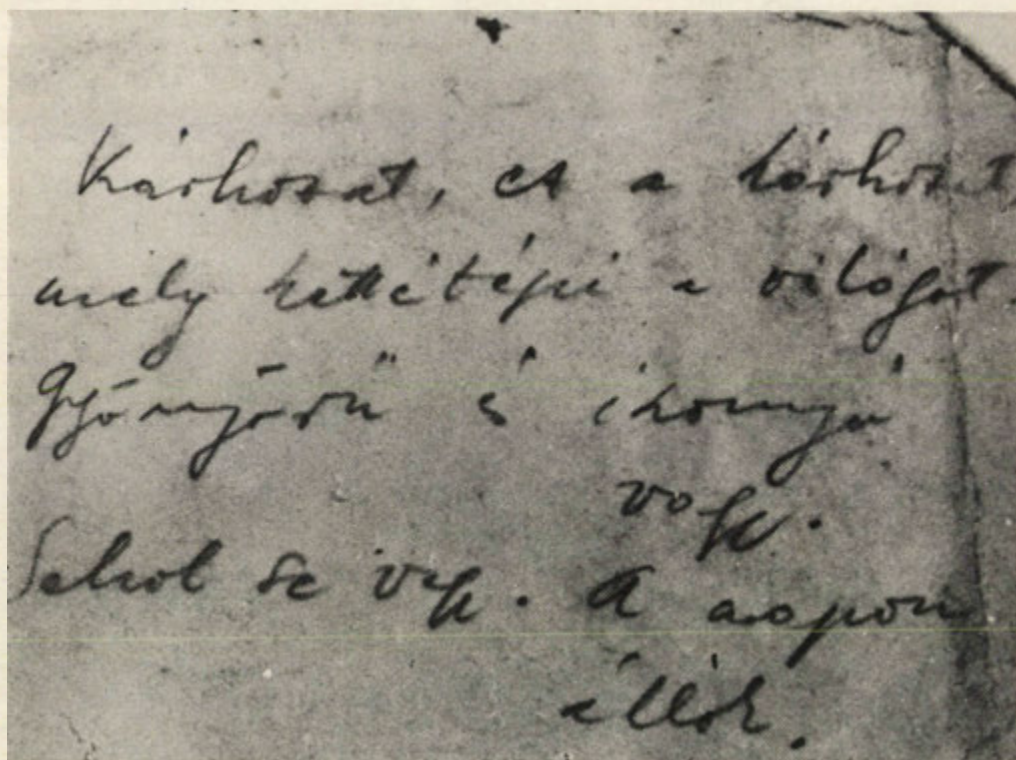 Kárhozat, ez a kárhozat,
mely kettétépi a világot.
Gyönyörű és iszonyú
vagy.
Sehol se vagy. A napon
állok.